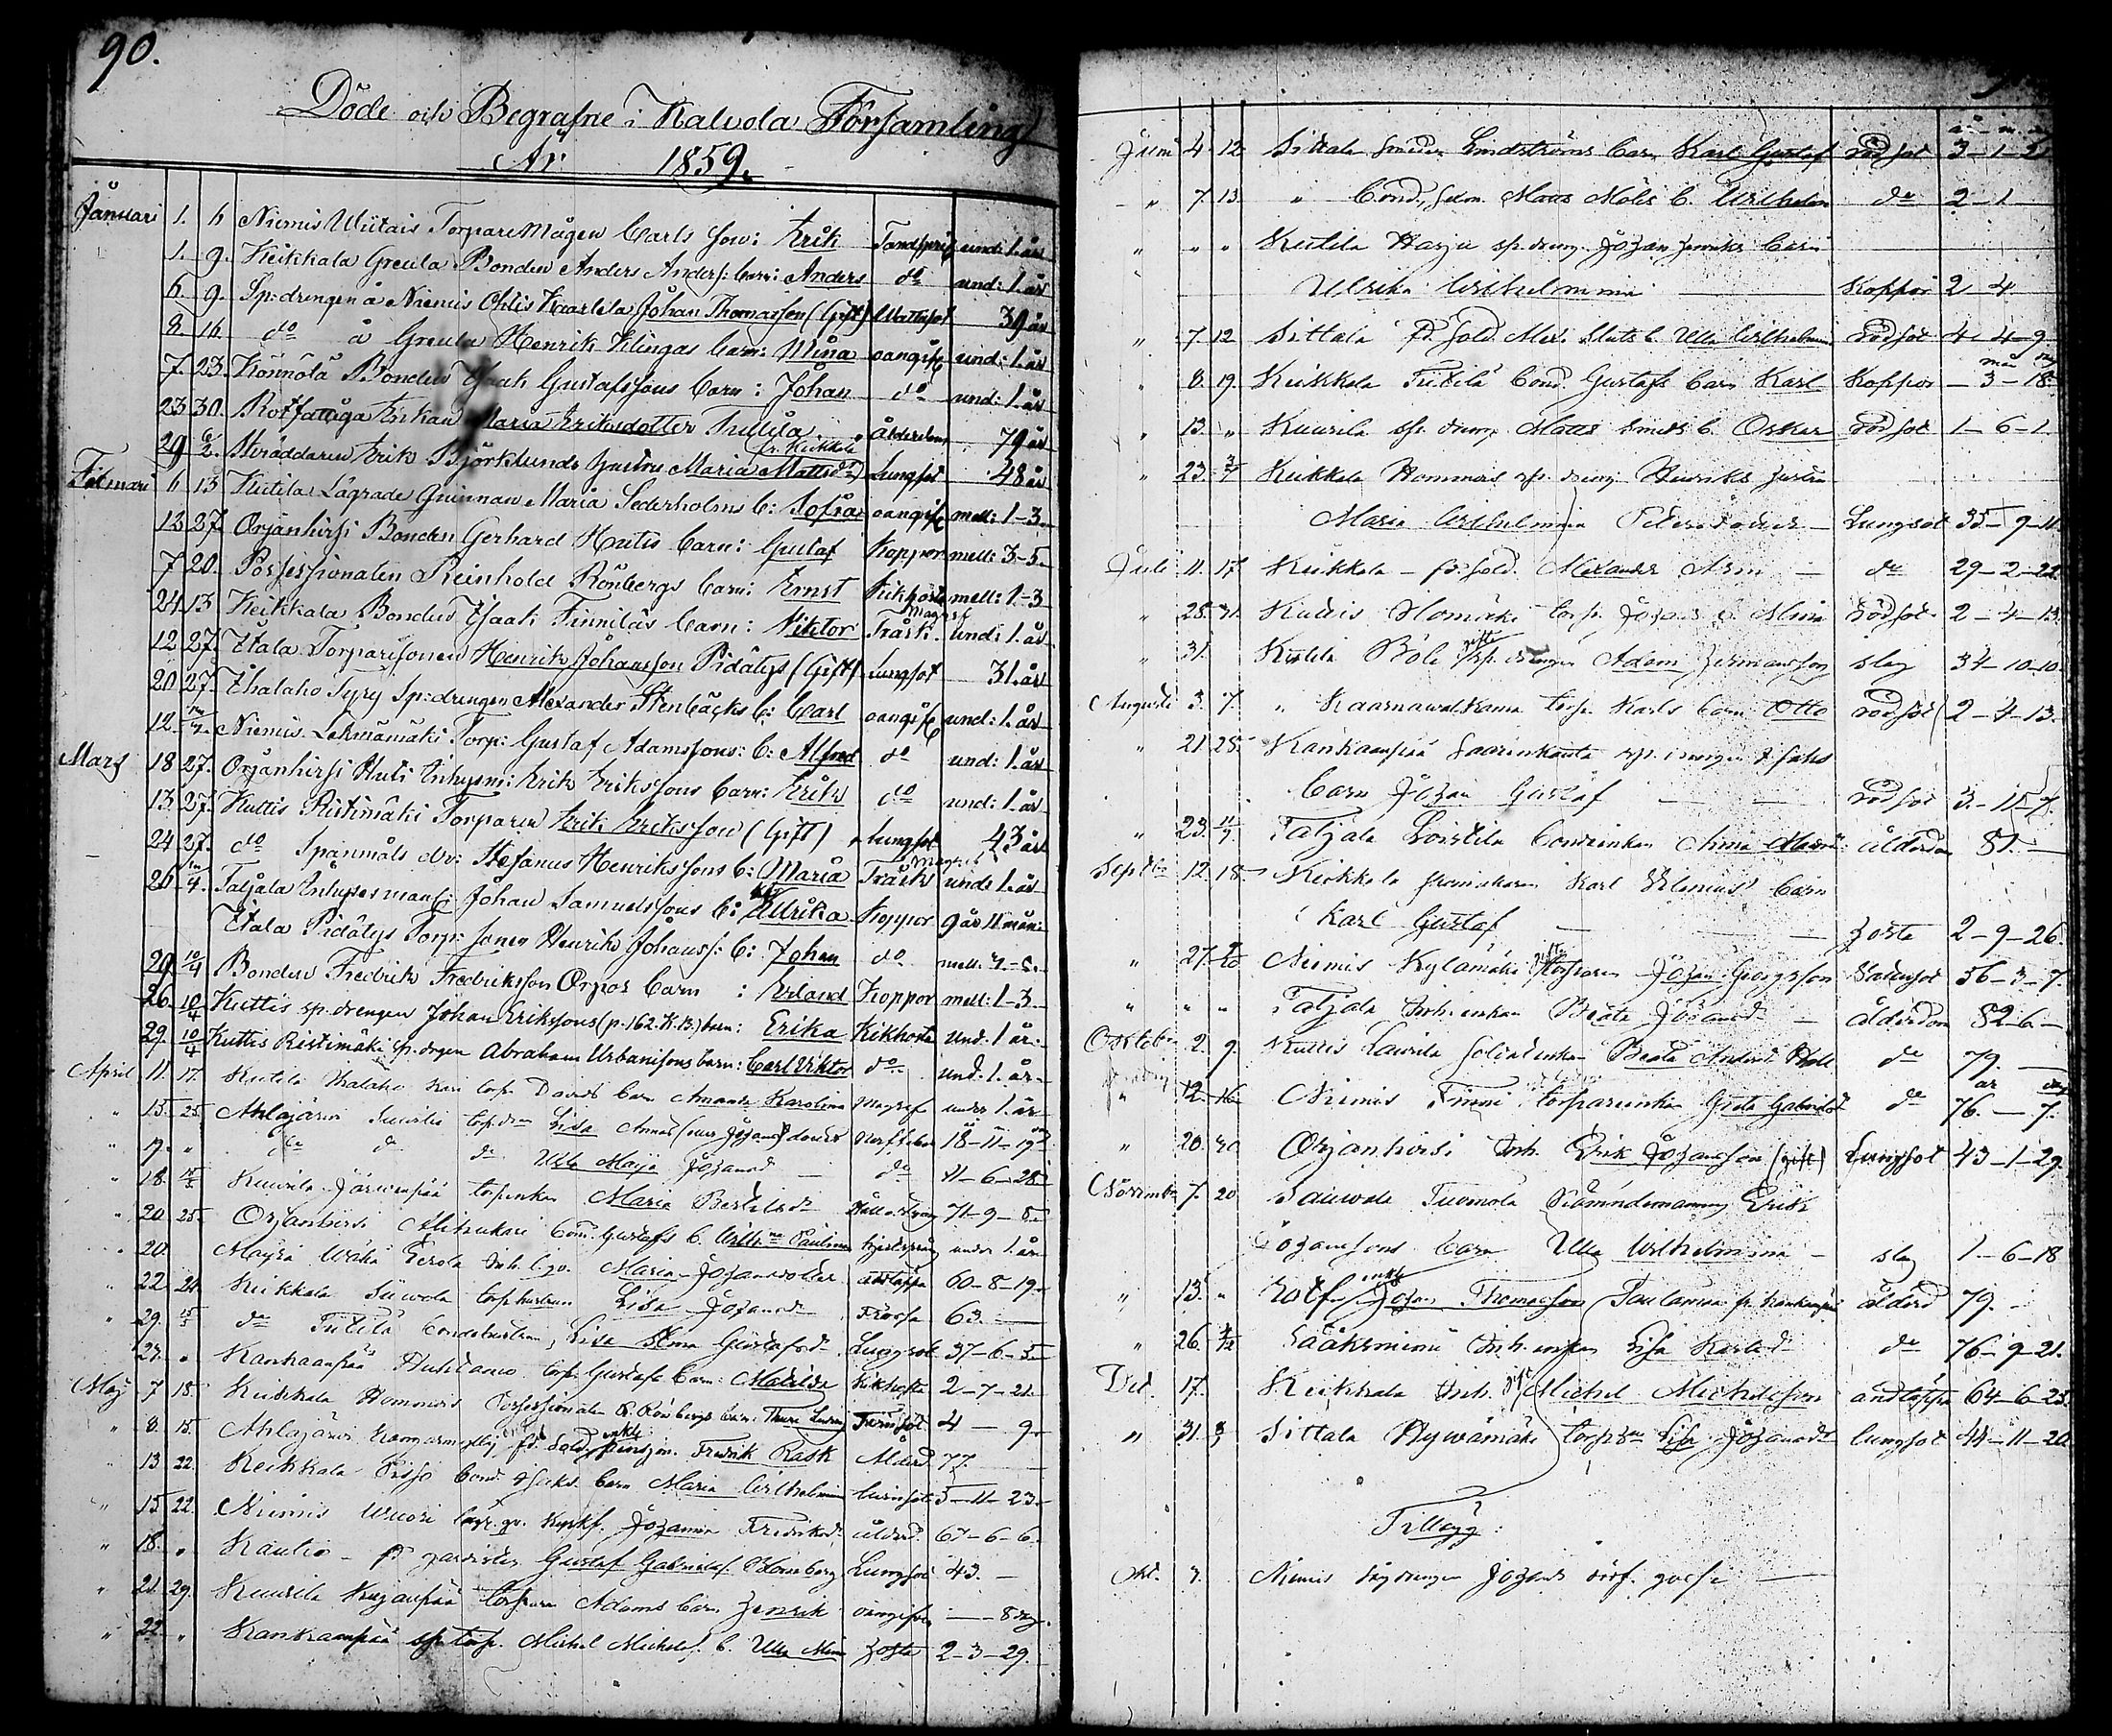 90.
Döde och Begrafne i Kalvola Församling
År 1859.
Januari 1. 6 Niemis Uliitais Torpare Mågen Carls son: Erik Tandspr: und: 1. år
1. 9. Keikkala Greula Bonden Anders Anders: barn: Anders do und: 1. år
6. 9. Sp: drengen å Niemis Ohlis Kaarlela Johan Thomasson (Gift) Wattusot 39 år
8. 16. do å Greula Henrik Klingas barn: Mina oangifv und: 1. år
7. 23. Könnölä Bonden Isaak Gustafssons barn: Johan do und: 1. år
23. 30. Rotfattiga Enkan Maria Eriksdotter Tulila Ålderdom 79 år
29 6/2. Skräddaren Erik Björklunds hustru Maria Mattsdr fr. Keikkala Lungsot 48 år
Februari 6 13 Kutila Lägrade Quinnan Maria Sederholms b: Sofia oangifv mell: 1-3.
12 27. Orjanhirsi Bonden Gerhard Hutis barn: Gustaf Koppor mell: 3-5.
7 20. Possessionaten Reinhold Rönbergs barn: Ernst Kikhosta mell: 1-3
24 13 Keikkala Bonden Isaak Finniläs barn: Viktor Tråsk. Magref und: 1. år
12 27. Etala Torparesonen Henrik Johansson Pidätys (Gift) Lungsot 31. år
20 27. Ihalaho Tyry Sp: drengen Alexander Stenbäcks b: Carl oangifv und: 1. år
12. Niemis Lehmämäki Torp: Gustaf Adamssons: b: Alfred do und: 1. år
Mars 18 27. Orjanhirsi Huti Inhysm: Erik Erikssons barn: Erik do und: 1. år
13. 27. Kuttis Ristimäki Torparen Erik Eriksson (Gift) Lungsot 43 år
24 27. do Spånmåls dr: Stefanus Henrikssons b: Maria Tråsk Magref und: 1. år
26 Taljala Inhysesmans: Johan Samuelssons b: Ulrika Koppor 9 år 11 mån:
Etala Pidätys Torp: sonen Henrik Johanss: b: Johan do mell:
29 10/4 Bonden Fredrik Fredriksson Orpos barn: Erland Koppor mell: 1-3.
26. 10/4 Kuttis sp. drengen Johan Erikssons (p. 162. K.B.) barn: Erika Kikhosta und. 1 år.
29. 10/4 Kuttis Ristimäki sp. drgen Abraham Urbanssons barn: Carl Viktor do und. 1. år.
April 11. 17. Kutila torp. Davids barn Amanda Karolina Magref under 1. år
" 15. 25. Ahlajärvi torp. Lisa Anna Johansdotter Nerffeber 18-11-19
" 19. " do do do Ulla Maija Johansdr do 11-6-28
" 18. Kuurila Järvenpää torpenkan Maria Bertilsdr Håll o. styng 71-9-8.
" 20 25. Orjanhirsi Alitukari bond. Gustafs b. Wilh:na Paulina hjertsprång under 1. år
" 20. Mäyrä Wähä Eerola inh. Maria Johansdotter andtäppa 60-8-19.
" 22 24. Keikkala torphustrun Lisa Johansdr Frossa 63.
" 29. 15/5 do Tulila bondehustrun, Lisa Stina Gustafsdr Lungsot 37-6-3.
" 27. " Kankaanpää torp. Gustafs barn: Matilda Kikhosta 2-7-21.
Maj 7 15. Keikkala Hommais Possessionaten R. Rönbergs barn: Thure Ludvig Tvinsot 4 - 9.
" 8. 15. Ahlajärvi fd. Sold. enkl. Fredrik Rask Ålderd. 77.
" 13 22. Keikkala bond. Isaks. barn Maria Wilhelmina tvinsot 5-11-23.
" 15 22. Niemis Wuori Johanna Fredriksdr ålderd. 67-6-6.
" 18. " Kautio - fd gardisten Gustaf Gabrielss. Blomberg Lungsot 43. -
" 21. 29. Kuurila Kujanpää torparen Adams barn Henrik oangifven — 8 dag.
" 22. " Kankaanpää torp. Mickel Mickelss: b. Ulla Mina hosta 2-3-29.
år m. d.
Juni 4. 12 Sittala smeden Lindströms barn Karl Gustaf rödsot 3-1-21
" 7. 13. " bond. son. Matts Mölis b. Wilhelm do 2-1
" " " Kutila Harju sp. dreng. Johan Henriks barn
Ulrika Wilhelmina Koppor 2-4
" 7. 12 Sittala fd. sold. Alex. Sluts b. Ulla Wilhelmina rödsot 4-4-9
" 8. 19. Keikkala Tulila bond. Gustafs barn Karl Koppor — 3 mån — 18. dag
" 13. " Kuurila sp. dreng. Matts Smeds b. Oskar rödsot 1-6-1
" 23. 3/7 Keikkala Hommais sp. dreng. Henriks hustru
Maria Wilhelmina Petersdotter Lungsot 35-9-11
Juli 11. 17. Keikkala - fd. sold. Alexander Arm - do 29-2-22.
" 25. 31. Kuttis Monäki torp. Johans b. Mina rödsot 2-4-13.
" 31. Kutila Böle gifte sp. drengen Adam Hermansson slag 34-10-10.
Augusti 3. 7. " Kaarnawalkama torp. Karls barn Otto rödsot 2-4-13.
" 21. 25. Kankaanpää Saarenkanta sp. drengen Isaks
barn Johan Gustaf rödsot 3.-11-7.
" 23. 11/9 Taljala Loistila bondeenkan Anna Maria ålderdom 81. —
Septbr 12. 18. Keikkala skomakaren Karl Helenius' barn
Karl Gustaf hosta 2-9-26.
" 27. Niemis Kylämäki gifte torparen Johan Georgsson Vattusot 56-3-7.
" " " Taljala Inh. enkan Beata Johansdr ålderdom 82-6-
Oktob. 2. 9. Kuttis Laurila soldatenkan Beata Andersdr Hall do 79. —
" 12. 16. Niemis Finni torpareenkan Greta Gabrielsdr do 76. år — 7. dag
" 20. 30 Orjanhirsi Inh. Erik Johansson (gift) Lungsot 43-1-29.
November 7. 20 Sauwala Tuomola Sexmändsmannen Erik
Johanssons barn Ulla Wilhelmina - slag 1-6-18
" 13. " Rotf. enkl. Johan Thomasson Toulaman fr. Kankaanpää ålderd 79. -
" 26. 4/12 Sääksmäki Inh. enkan Lisa Karlsdr do 76-9-21.
Dec. 17. Keikkala Inh. gift Mickel Mickelsson andtäppa 64-6-25.
" 31. Sittala Hywämäki torp. Lisa Johansdr lungsot 44-11-20
Tillägg:
Okt. 9. Niemis Johans dödf. gosse —